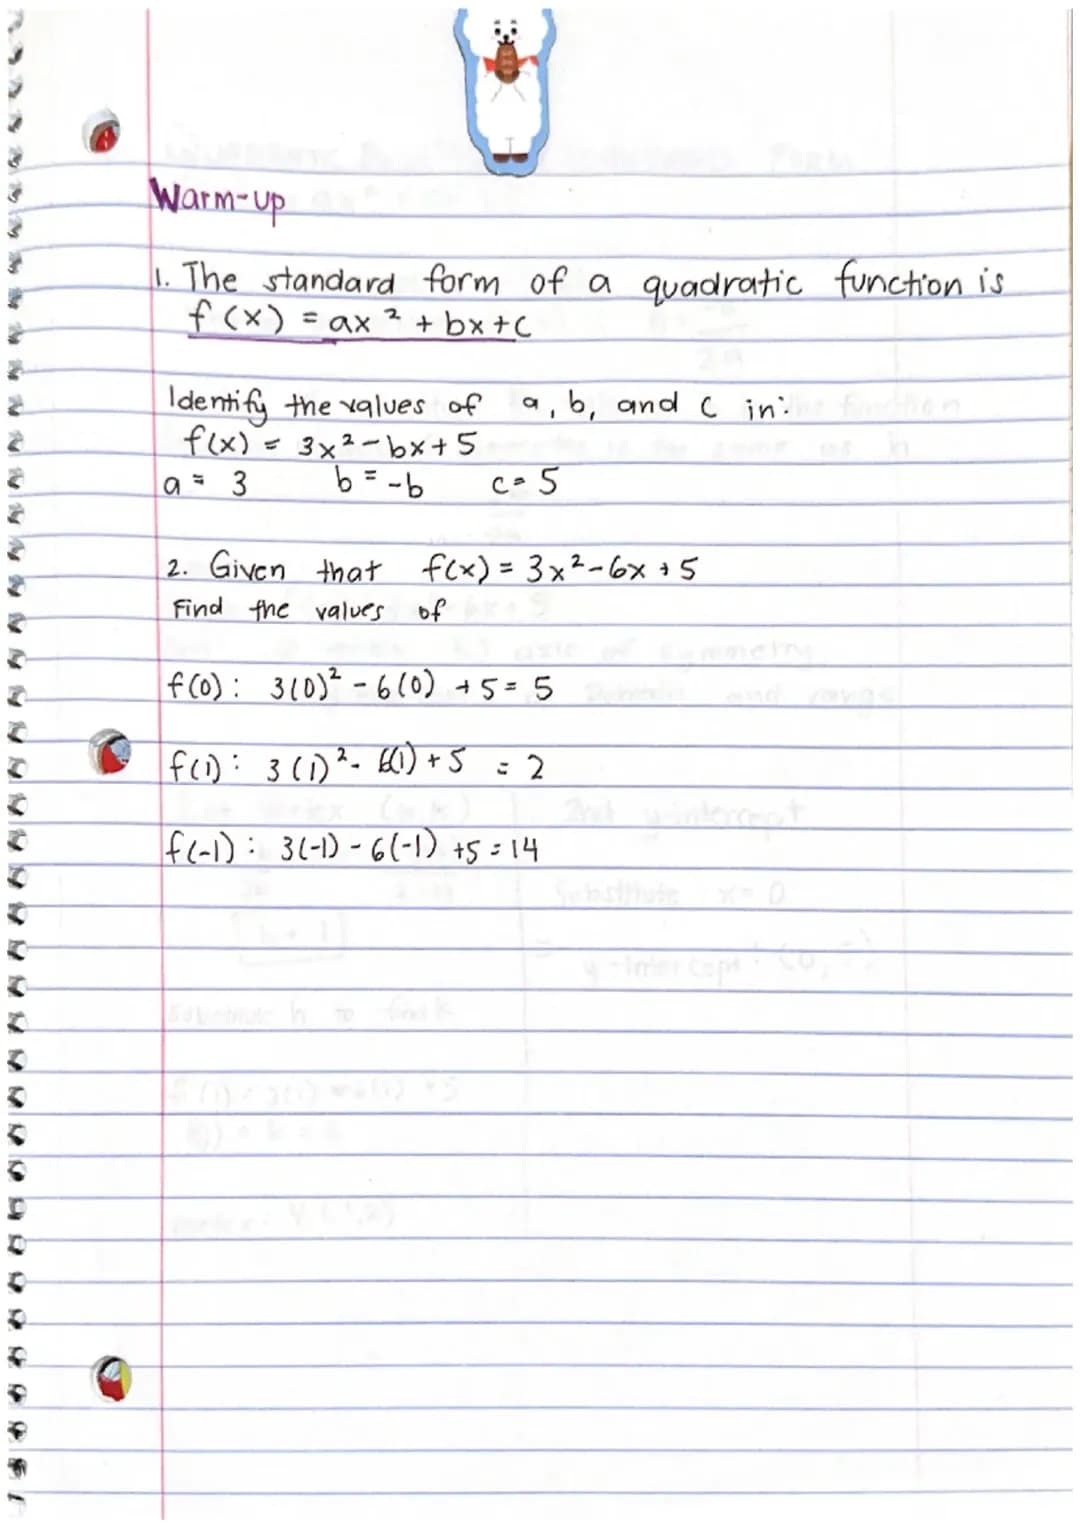 Warm-up
1. The standard form of a quadratic function is
f(x) = ax² + bx+c
Identify the values of a, b, and c in:
f(x) = 3x²-bx+5
a = 3 b = -b c = 5
2. Given that f(x) = 3x²-6x+5
Find the values of
f(0): 3(0)² - 6(0) +5 = 5
f(1): 3(1)² - 6(1) + 5 = 2
f(-1): 3(-1) - 6(-1) +5 = 14